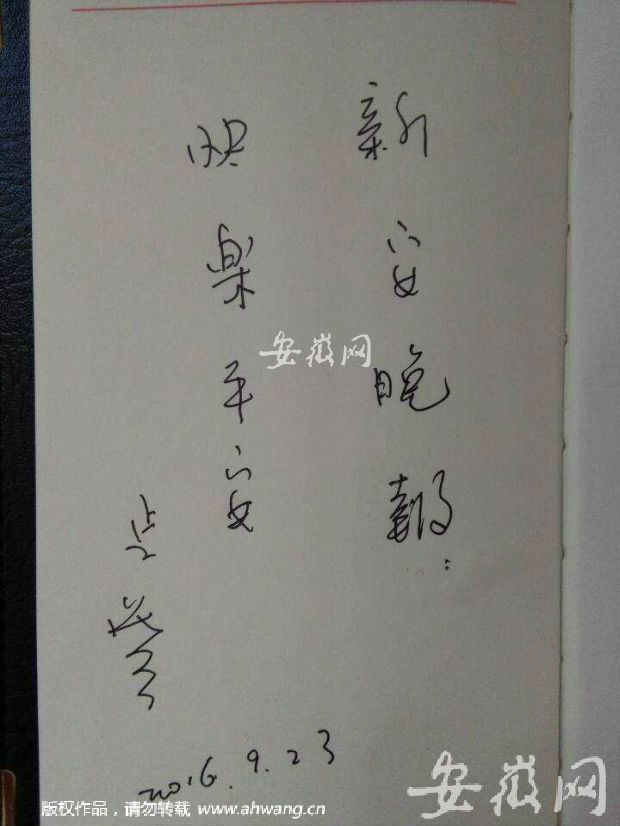 新安晚報:
快樂平安
2016.9.23
安徽网
安徽网
版权作品，请勿转载 www.ahwang.cn